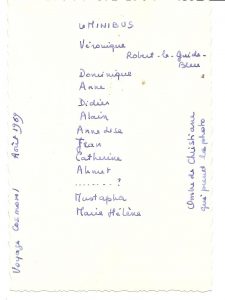 MINIBUS
Véronique
Robert-le-Guide-
Bleu
Dominique "
Anne
Didier
Alain
Anne Lise
Jean
Catherine
Ahmet
........?
Mustapha
Marie Hélène
Voyage
Août 1989
Ombre de Christiane
qui prend la photo